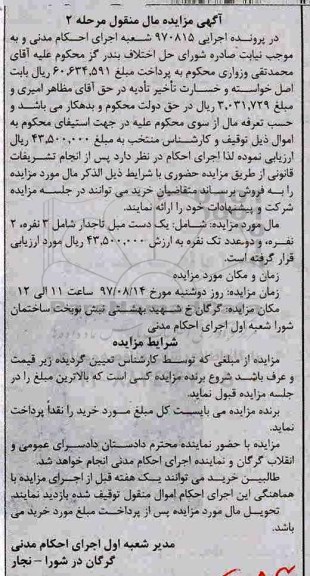 آگهی مزایده مال منقول مرحله ۲
در پرونده اجرایی ۹۷۰۸۱۵ شعبه اجرای احکام مدنی و به
موجب نیابت صادره شورای حل اختلاف بندر گز محکوم علیه آقای
محمدتقی وزواری محکوم به پرداخت مبلغ ۶۰,۶۳۴,۵۹۱ ریال بابت
اصل خواسته و خسارت تأخیر تأدیه در حق آقای مظاهر امیری و
مبلغ ۳,۰۳۱,۷۲۹ ریال در حق دولت محکوم و بدهکار می باشد و
حسب تعرفه مال از سوی محکوم علیه در جهت استیفای محکوم به
اموال ذیل توقیف و کارشناس منتخب به مبلغ ۴۳,۵۰۰,۰۰۰ ریال
ارزیابی نموده لذا اجرای احکام در نظر دارد پس از انجام تشریفات
قانونی از طریق مزایده حضوری با شرایط ذیل الذکر مال مورد مزایده
را به فروش برساند متقاضیان خرید می توانند در جلسه مزایده
شرکت و پیشنهادات خود را ارائه نمایند.
مال مورد مزایده: شامل: یک دست مبل تاجدار شامل ۳ نفره، ۲
نفره، و دو عدد تک نفره به ارزش ۴۳,۵۰۰,۰۰۰ ریال مورد ارزیابی
قرار گرفته است.
زمان و مکان مورد مزایده
زمان مزایده: روز دوشنبه مورخ ۹۷/۰۸/۱۴ ساعت ۱۱ الی ۱۲
مکان مزایده: گرگان خ شهید بهشتی نبش نوبخت ساختمان
شورا شعبه اول اجرای احکام مدنی
شرایط مزایده
مزایده از مبلغی که توسط کارشناس تعیین گردیده زیر قیمت
و عرف باشد شروع برنده مزایده کسی است که بالاترین مبلغ را در
جلسه مزایده قبول نماید.
برنده مزایده می بایست کل مبلغ مورد خرید را نقداً پرداخت
نماید.
مزایده با حضور نماینده محترم دادستان دادسرای عمومی و
انقلاب گرگان و نماینده اجرای احکام مدنی انجام خواهد شد.
طالبین خرید می توانند یک هفته قبل از اجرای مزایده با
هماهنگی این اجرای احکام اموال منقول توقیف شده بازدید نمایند.
تحویل مال مورد مزایده پس از پرداخت مبلغ مورد خرید می
باشد.
مدیر شعبه اول اجرای احکام مدنی
گرگان در شورا – نجار